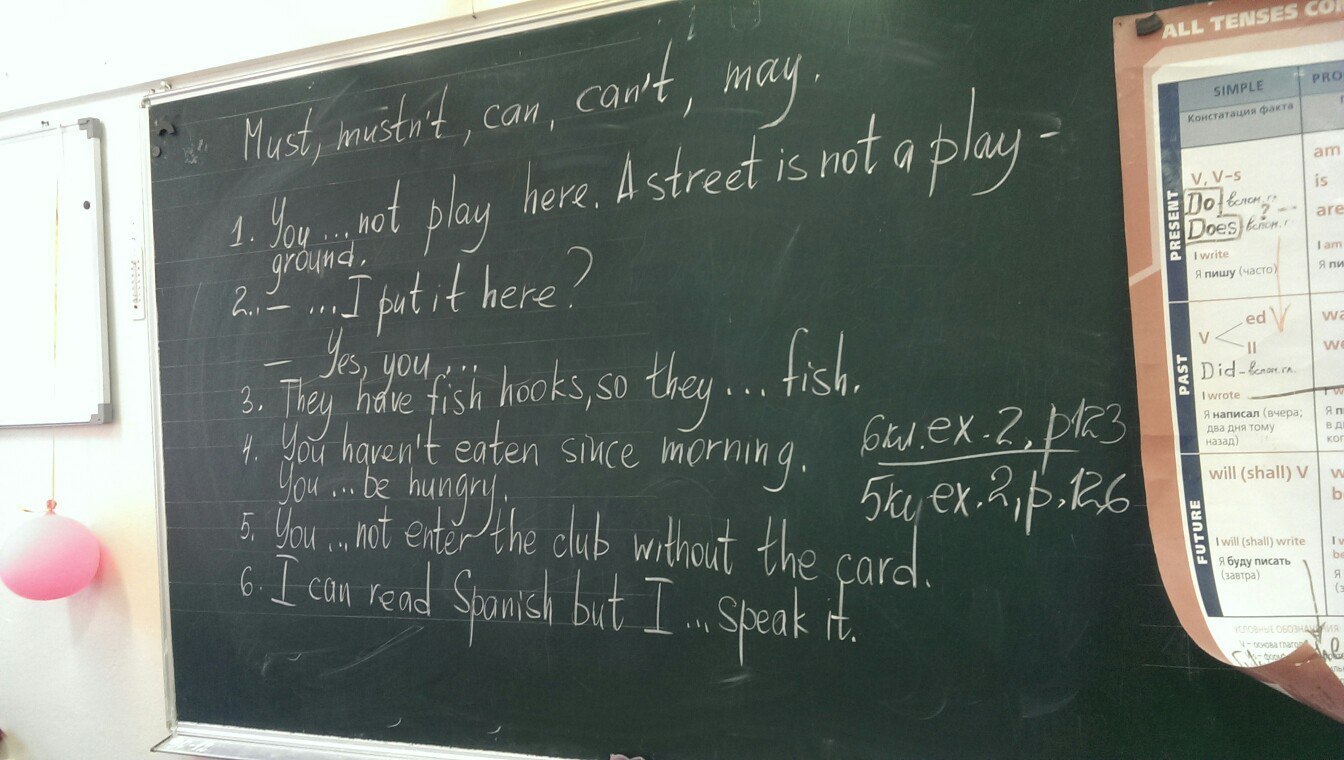 Must, mustn't, can, can't, may.
1. You ... not play here. A street is not a play-
ground.
2. – ... I put it here?
– Yes, you ...
3. They have fish hooks, so they ... fish.
4. You haven't eaten since morning.
You ... be hungry.
5. You ... not enter the club without the card.
6. I can read Spanish but I ... speak it.
6кл. ex. 2, p123
5кл ex. 2, p. 126
ALL TENSES CO
SIMPLE
PRO
Констатация факта
PRESENT
V, V-s
Do вспом. г.
?
Does вспом. г.
I write
Я пишу (часто)
am
is
are
I am
Я пи
PAST
V
ed
II
Did – вспом. гл.
I wrote
Я написал (вчера,
два дня тому
назад)
wa
we
FUTURE
will (shall) V
I will (shall) write
Я буду писать
(завтра)
УСЛОВНЫЕ ОБОЗНАЧЕНИЯ